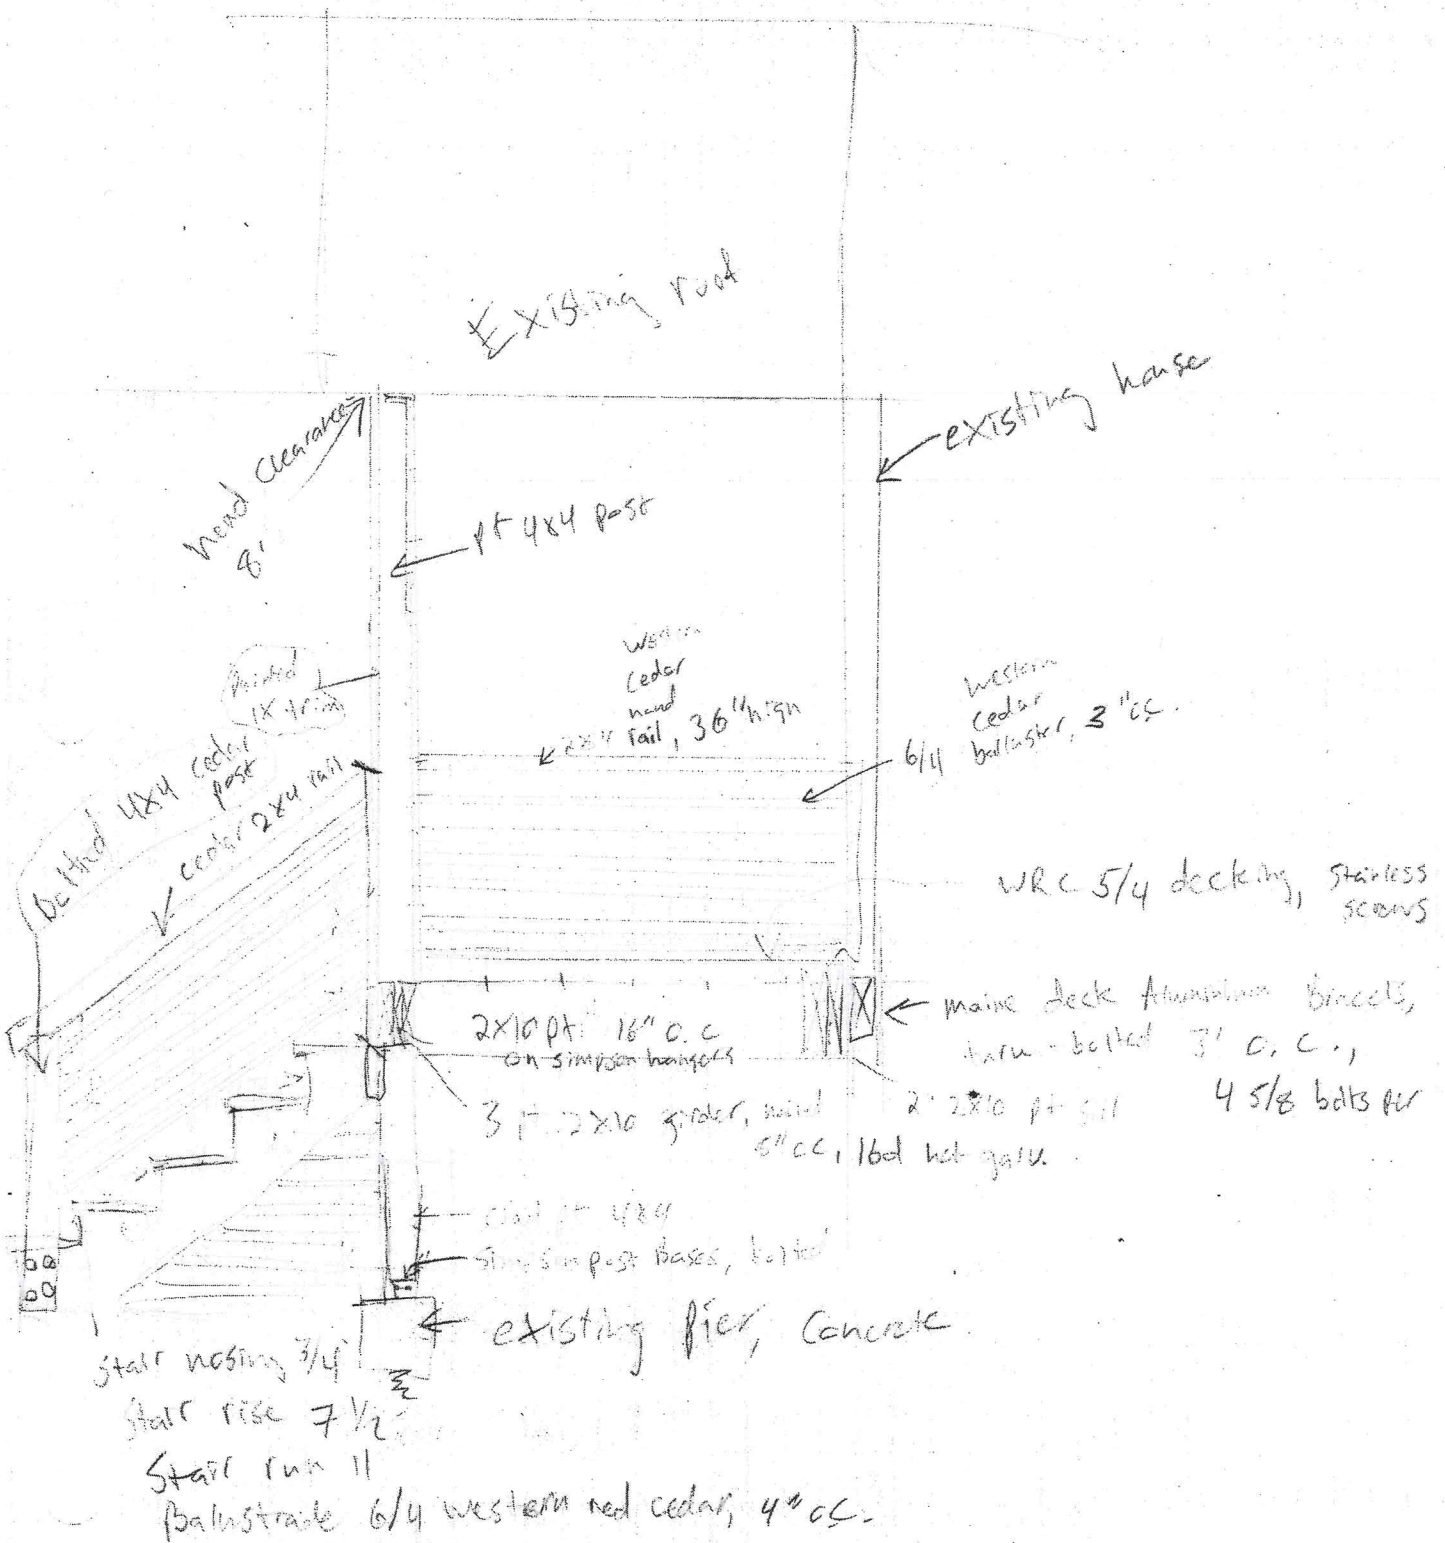 Existing roof
existing house
head clearance
8'
pt 4x4 post
painted
1x trim
western
cedar
hand
2x4 rail, 36" high
western
cedar
6/4 balluster, 3" cc.
bolted 4x4 cedar
post
cedar 2x4 rail
WRC 5/4 decking, stainless
screws
2x10 pt 16" o.c
on simpson hangers
maine deck Aluminum Bracets,
thru-bolted 3' o.c.,
4 5/8 bolts per
3 pt 2x10 girder, nailed
6" cc, 16d hot galv.
2 2x10 pt sill
pt 4x4
simpson post Bases, bolted
existing Pier, Concrete
Stair nosing 3/4"
Stair rise 7 1/2
Stair run 11
Balustrade 6/4 western red cedar, 4" cc.